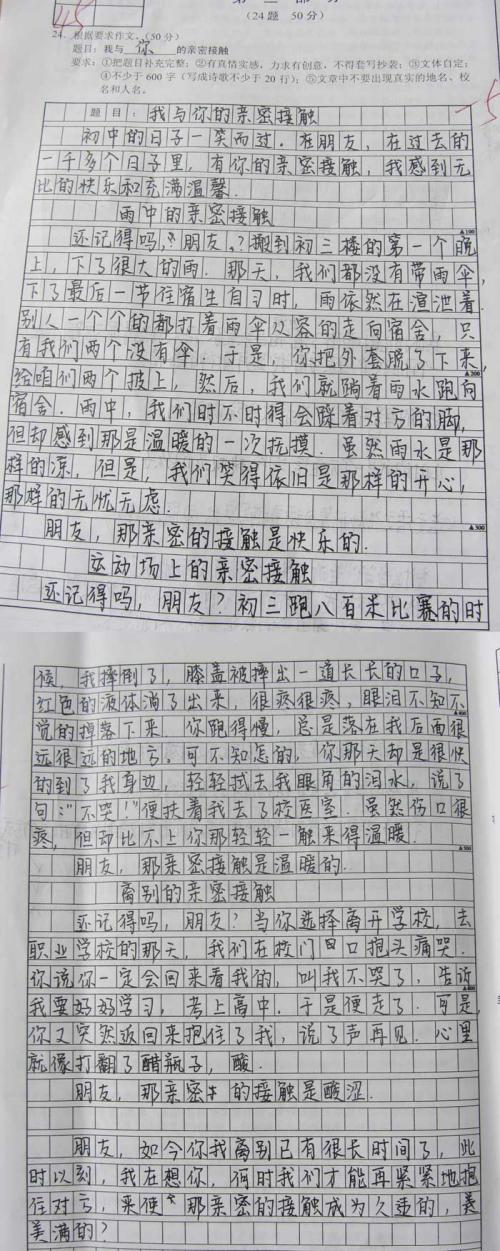 45
第二部分
(24题 50分)
24. 根据要求作文。(50分)
题目：我与 你 的亲密接触
要求：①把题目补充完整；②有真情实感，力求有创意，不得套写抄袭；③文体自定；
④不少于 600 字 (写成诗歌不少于 20 行)；⑤文章中不要出现真实的地名、校
名和人名。
-5
题目：我与你的亲密接触
初中的日子一笑而过．在朋友，在过去的
一千多个日子里，有你的亲密接触，我感到无
比的快乐和充满温馨．
▲100
雨中的亲密接触
还记得吗，“朋友，？搬到初三楼的第一个晚
上，下了很大的雨．那天，我们都没有带雨伞，
下了最后一节住宿生自习时，雨依然在渲泄着．
别人一个个的都打着雨伞从容的走向宿舍，只
有我们两个没有伞．于是，你把外套脱了下来，
▲200
给咱们两个披上，然后，我们就踏着雨水跑向
宿舍．雨中，我们时不时得会踩着对方的脚，
但却感到那是温暖的一次抚摸．虽然雨水是那
样的凉，但是，我们笑得依旧是那样的开心，
那样的无忧无虑．
▲300
朋友，那亲密的接触是快乐的．
运动场上的亲密接触
还记得吗，朋友？初三跑八百米比赛的时
候，我摔倒了，膝盖被摔出一道长长的口子，
红色的液体淌了出来，很疼很疼，眼泪不知不
觉的掉落下来．你跑得慢，总是落在我后面很
远很远的地方。可不知怎的，你那天却是很快
的到了我身边，轻轻拭去我眼角的泪水，说了
句：“不哭！”便扶着我去了校医室．虽然伤口很
疼，但却比不上你那轻轻一触来得温暖．
▲500
朋友，那亲密接触是温暖的．
离别的亲密接触
还记得吗，朋友？当你选择离开学校，去
职业学校的那天，我们在校门口抱头痛哭．
你说你一定会回来看我的，叫我不哭了，告诉
我要好好学习，考上高中．于是便走了．可是，
你又突然返回来抱住了我，说了声再见．心里
就像打翻了醋瓶子，酸．
朋友，那亲密的接触是酸涩．
朋友，如今你我离别已有很长时间了，此
时以刻，我在想你，何时我们才能再紧紧地抱
住对方，来使那亲密的接触成为久违的，美
美满的？